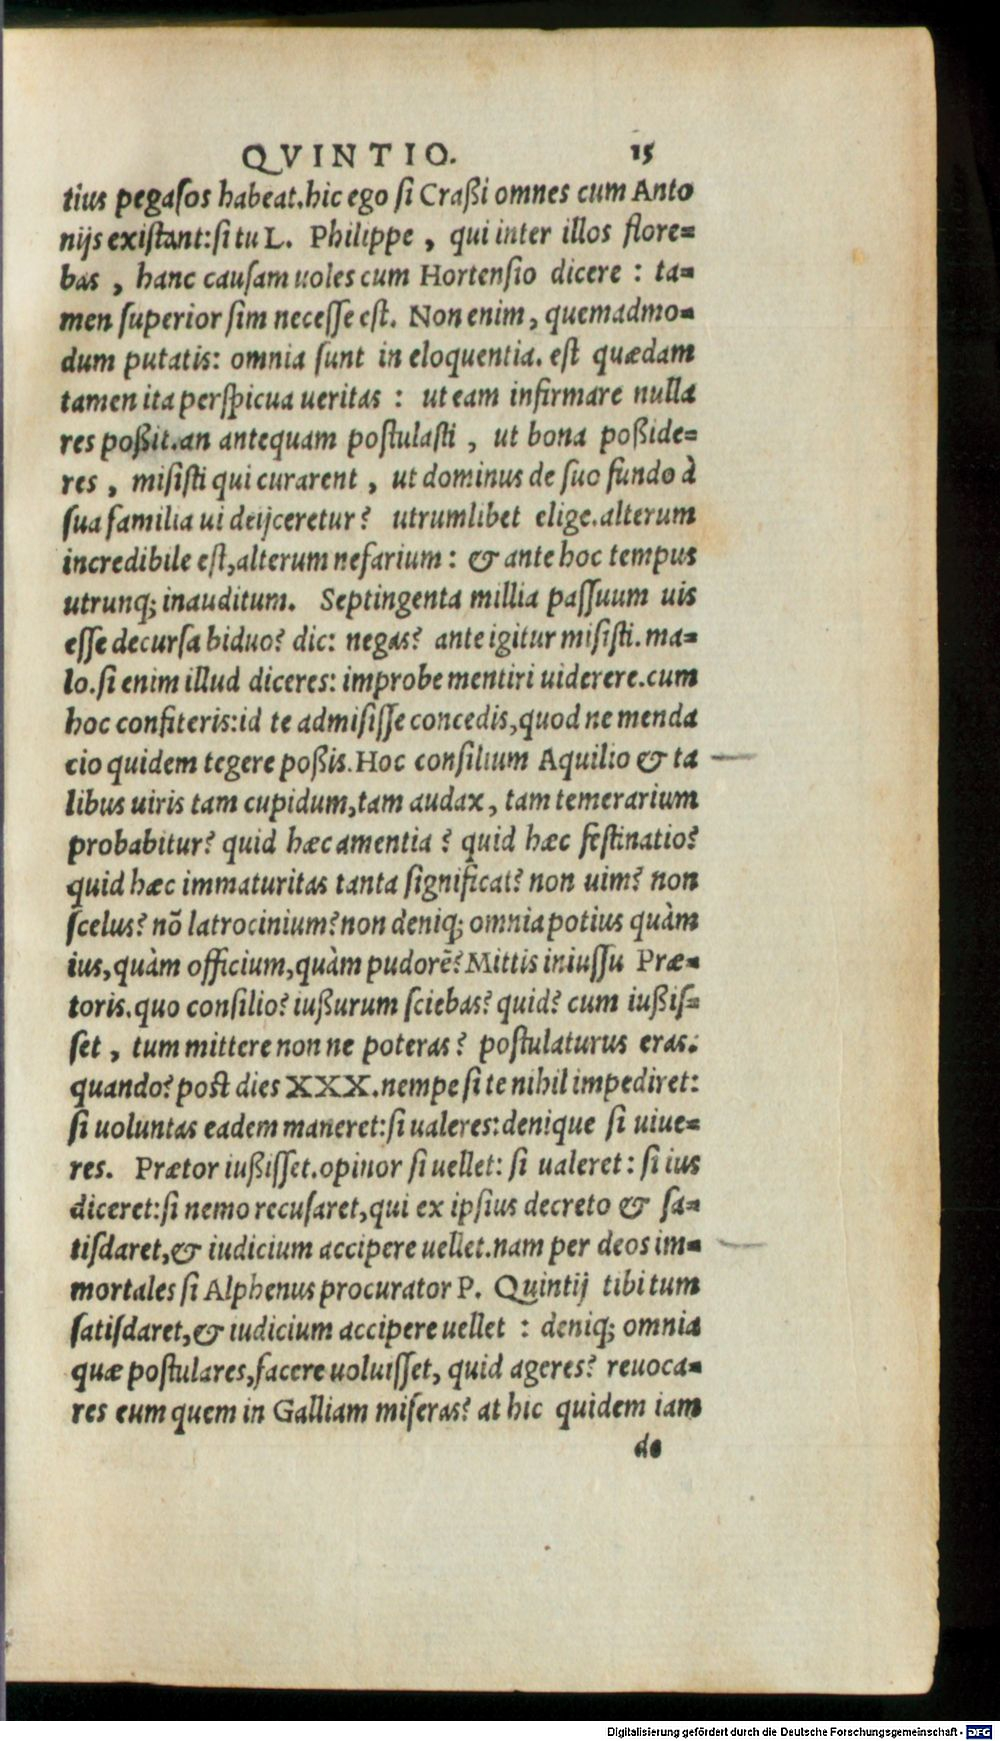 QVINTIO. 15
tius pegasos habeat.hic ego si Craßi omnes cum Anto
nijs existant:si tu L. Philippe , qui inter illos flore=
bas , hanc causam uoles cum Hortensio dicere : ta=
men superior sim necesse est. Non enim, quemadmo=
dum putatis: omnia sunt in eloquentia. est quædam
tamen ita perspicua ueritas : ut eam infirmare nulla
res poßit.an antequam postulasti , ut bona poßide=
res , misisti qui curarent , ut dominus de suo fundo à
sua familia ui deijceretur? utrumlibet elige.alterum
incredibile est,alterum nefarium: & ante hoc tempus
utrunq; inauditum. Septingenta millia passuum uis
esse decursa biduo? dic: negas? ante igitur misisti. ma=
lo.si enim illud diceres: improbe mentiri uiderere.cum
hoc confiteris:id te admisisse concedis,quod ne menda
cio quidem tegere poßis.Hoc consilium Aquilio & ta
libus uiris tam cupidum,tam audax, tam temerarium
probabitur? quid hæc amentia ? quid hæc festinatio?
quid hæc immaturitas tanta significat? non uim? non
scelus? nõ latrocinium?non deniq; omnia potius quàm
ius,quàm officium,quàm pudorẽ?Mittis iniussu Præ=
toris.quo consilio? iußurum sciebas? quid? cum iußis=
set , tum mittere non ne poteras? postulaturus eras.
quando? post dies XXX.nempe si te nihil impediret:
si uoluntas eadem maneret:si ualeres:denique si uiue=
res. Prætor iußisset.opinor si uellet: si ualeret: si ius
diceret:si nemo recusaret,qui ex ipsius decreto & sa=
tisdaret,& iudicium accipere uellet.nam per deos im=
mortales si Alphenus procurator P. Quintij tibi tum
satisdaret,& iudicium accipere uellet : deniq; omnia
quæ postulares,facere uoluisset, quid ageres? reuoca=
res eum quem in Galliam miseras? at hic quidem iam
de
Digitalisierung gefördert durch die Deutsche Forschungsgemeinschaft - DFG